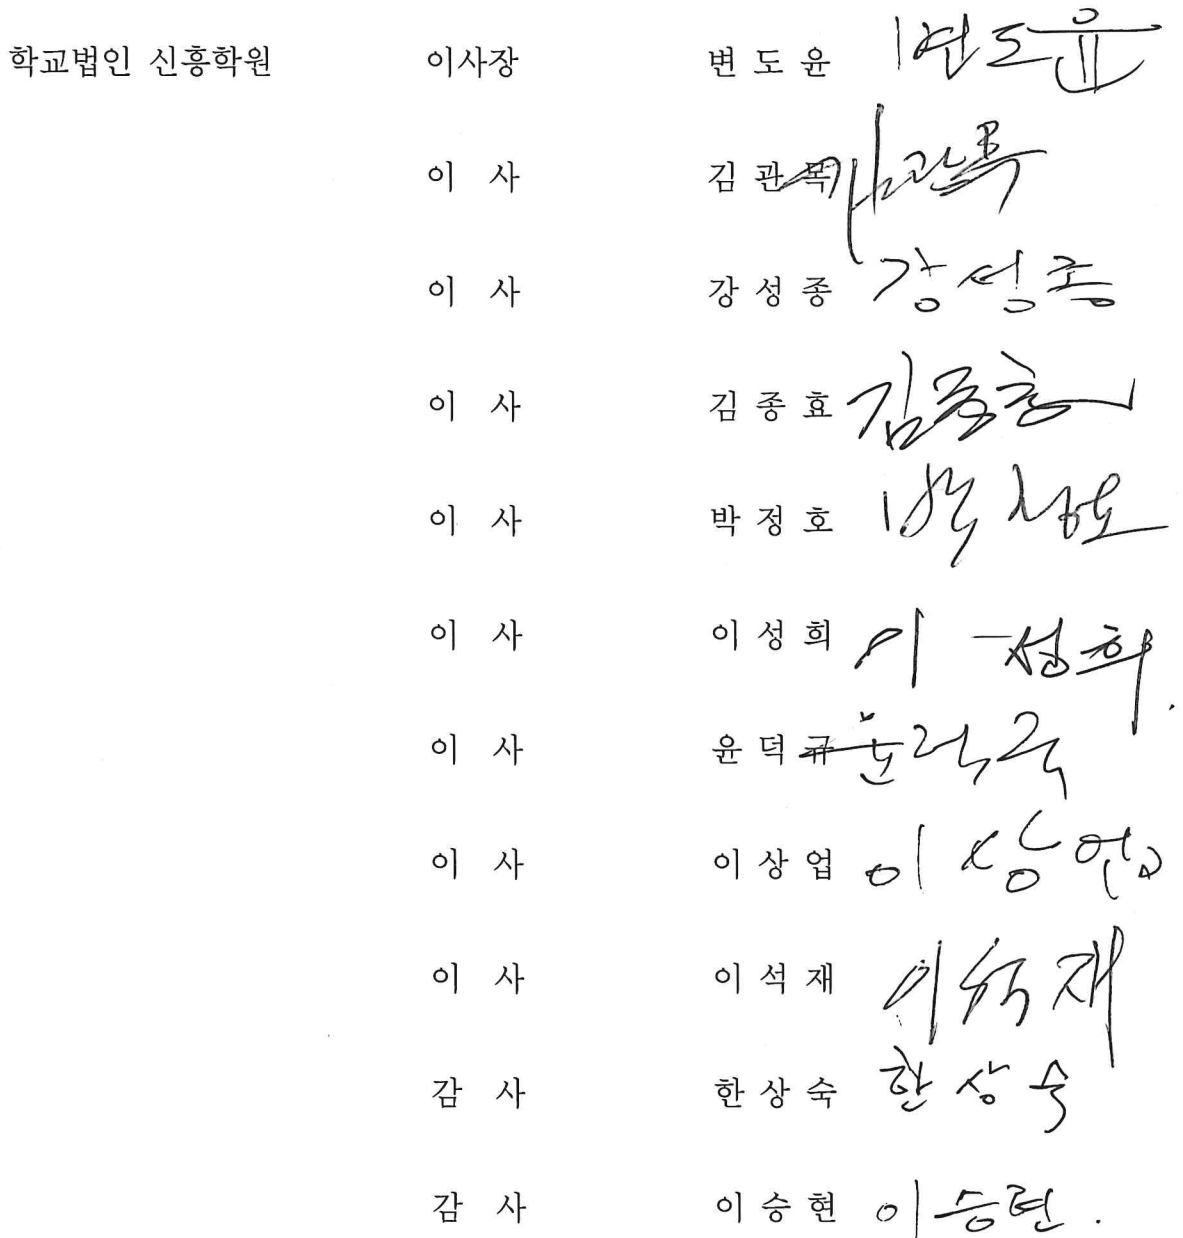 학교법인 신흥학원 이사장 변 도 윤 변도윤
이 사 김 관 목 김관목
이 사 강 성 종 강성종
이 사 김 종 효 김종효
이 사 박 정 호 박정호
이 사 이 성 희 이성희
이 사 윤 덕 규 윤덕규
이 사 이 상 업 이상업
이 사 이 석 재 이석재
감 사 한 상 숙 한상숙
감 사 이 승 현 이승현.